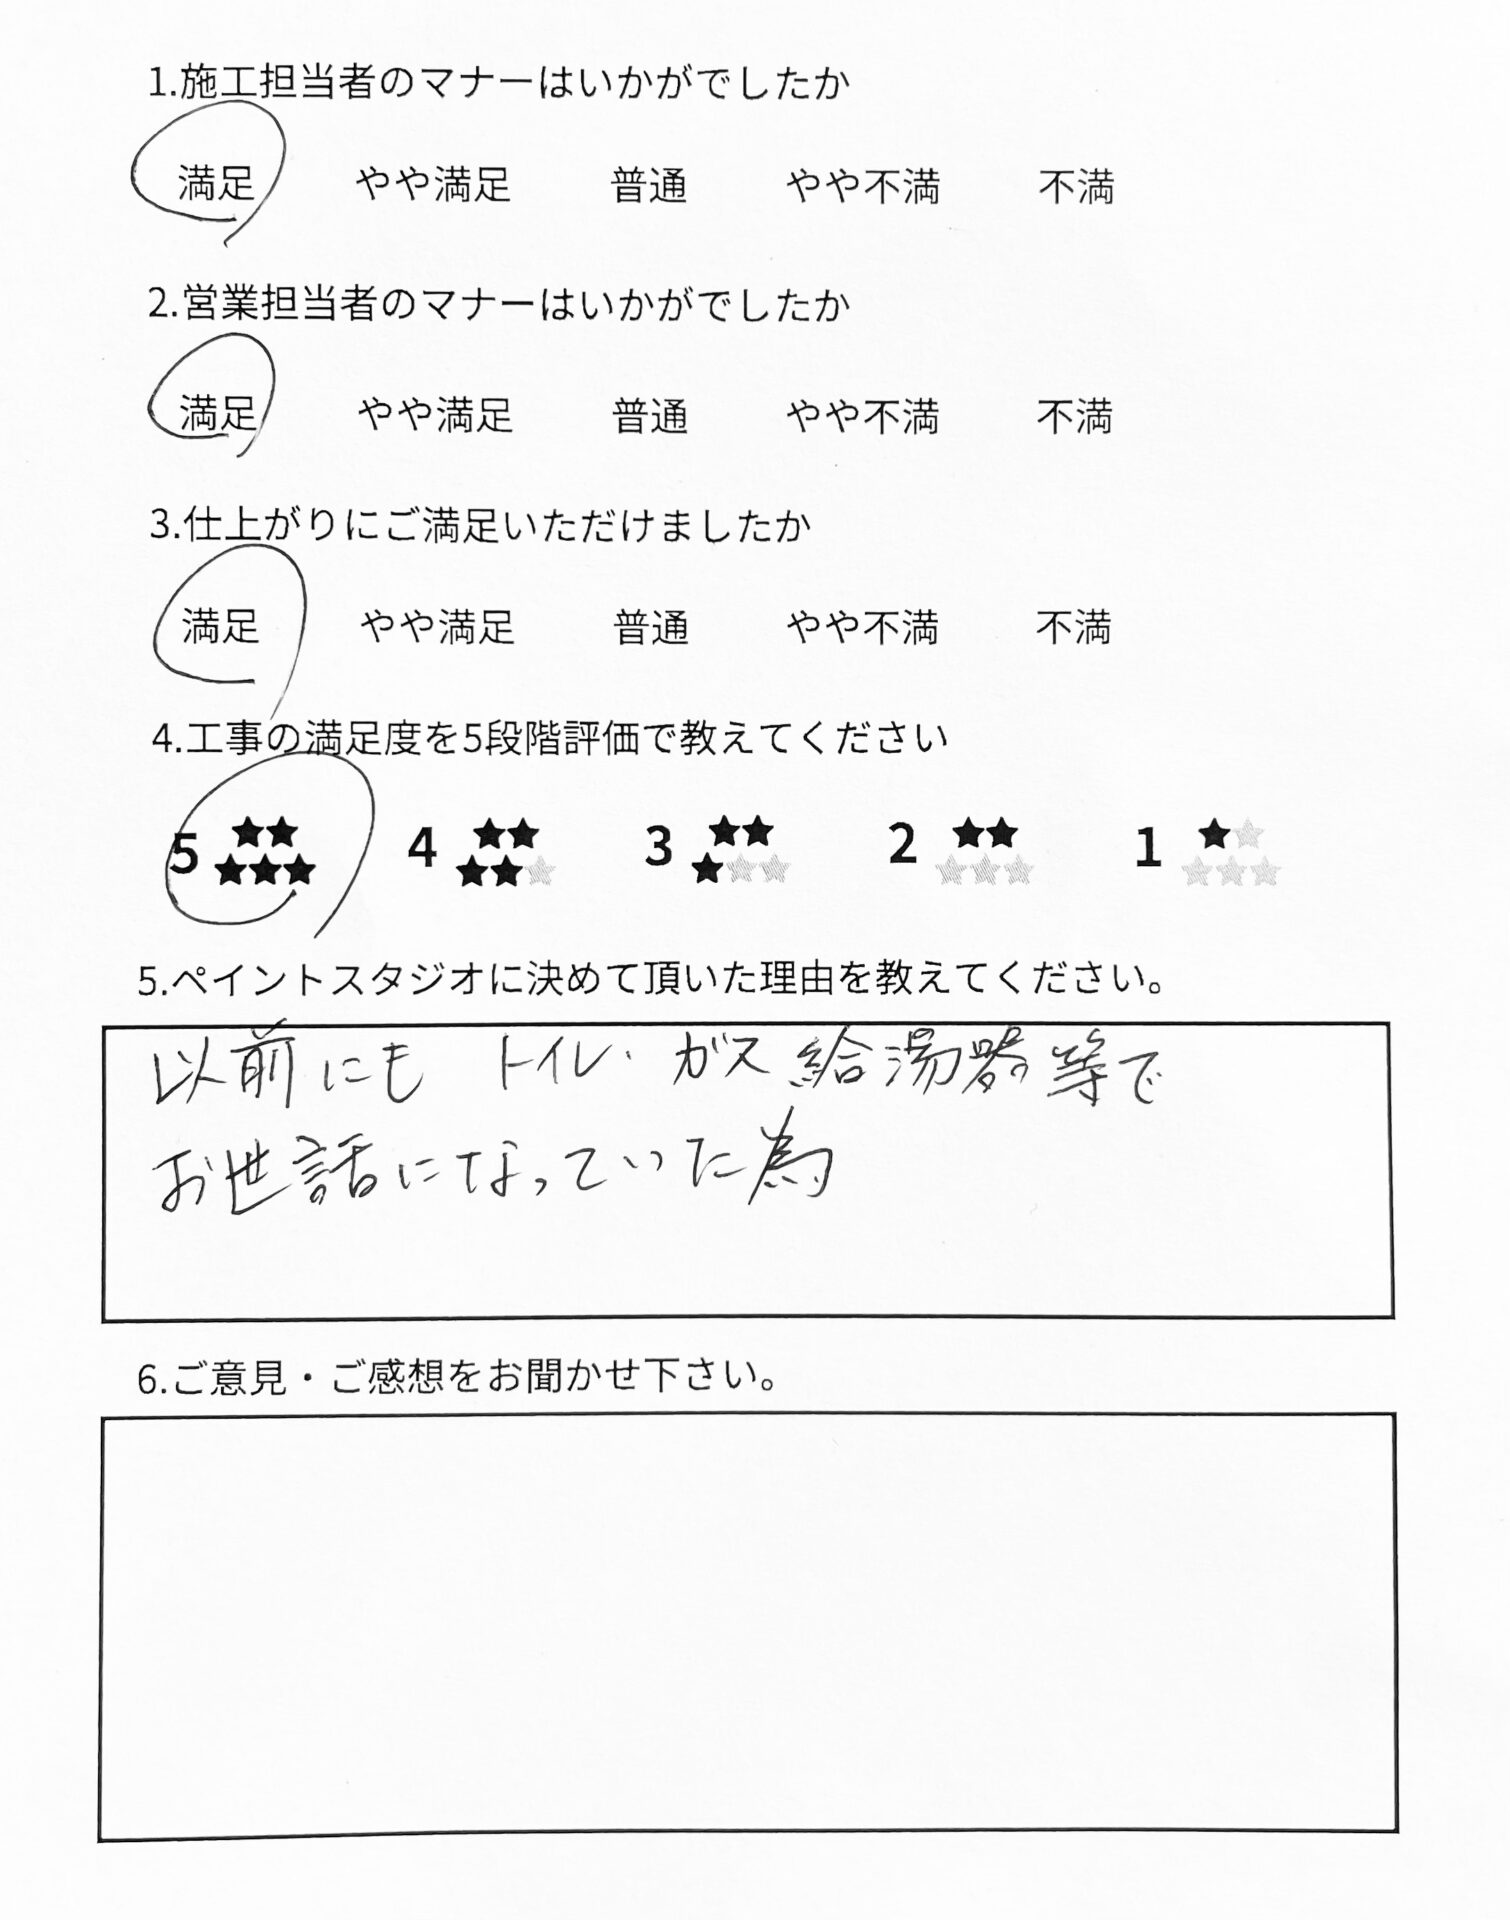 1.施工担当者のマナーはいかがでしたか
満足 やや満足 普通 やや不満 不満
2.営業担当者のマナーはいかがでしたか
満足 やや満足 普通 やや不満 不満
3.仕上がりにご満足いただけましたか
満足 やや満足 普通 やや不満 不満
4.工事の満足度を5段階評価で教えてください
5 4 3 2 1
5.ペイントスタジオに決めて頂いた理由を教えてください。
以前にも トイレ・ガス給湯器等で
お世話になっていた為
6.ご意見・ご感想をお聞かせ下さい。